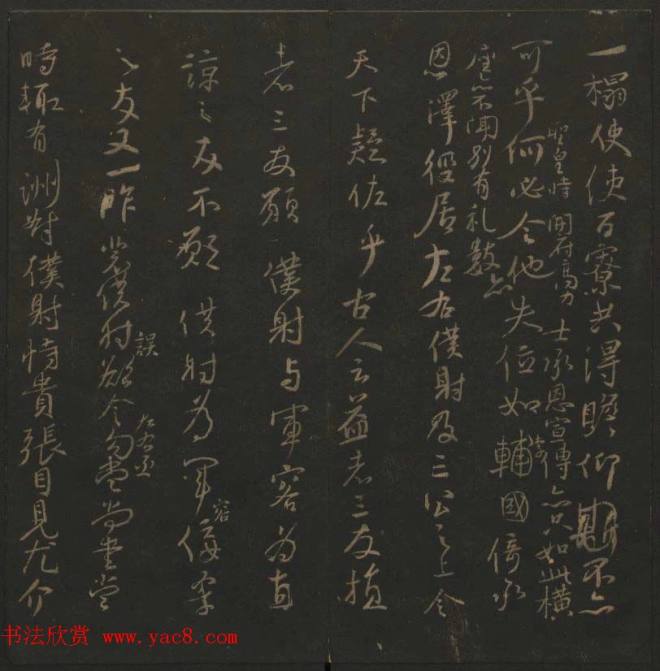 一榻使使百寮共得瞻仰不亦
聖皇時開府高力士承恩宣傳亦只如此橫
可乎何必令他失位如輔國倚承
座亦不聞別有礼數亦
恩澤徑居左右僕射及三公之上令
天下疑恠乎古人云益者三友損
者三友願僕射与軍容為直
諒之友不願僕射為軍容佞柔
之友又一昨裴僕射誤欲令左右丞勾當尚書當
時輒有酬對僕射恃貴張目見尤介
书法欣赏 www.yac8.com